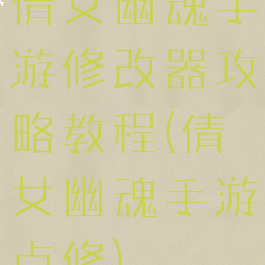 倩女幽魂手
游修改器攻
略教程(倩
女幽魂手游
点修)